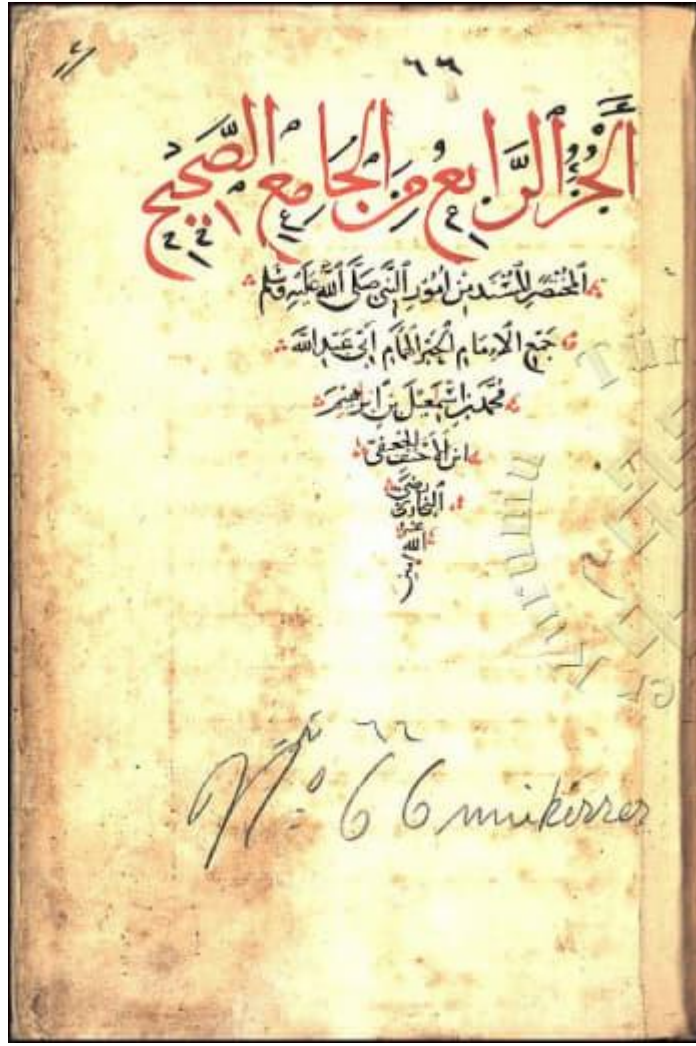 ٦٦
الْجُزْءُ الرَّابِعُ مِنَ الْجَامِعِ الصَّحِيحِ
المختصر المسند من أمور النبي صلى الله عليه وسلم
جمع الإمام الحبر الهمام أبي عبد الله
محمد بن اسمعيل بن ابراهيم
ابن الأحنف الجعفي
البخاري رضي
الله
عنه
٦٦
Nº 66 mükerrer